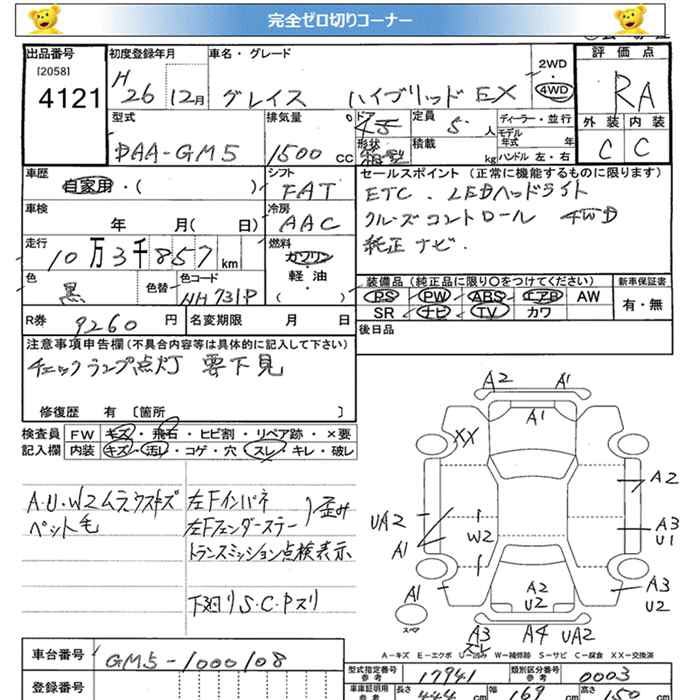 完全ゼロ切りコーナー
出品番号 初度登録年月 車名・グレード 2WD 評価点
[2058] 4WD
4121 H26 12月 グレイス ハイブリッド EX RA
型式 排気量 ドア 定員 ディーラー・並行 外装 内装
DAA-GM5 1500 cc 45 5人 モデル年式 年 C C
形状 箱型 積載 kg ハンドル 左・右
車歴 シフト セールスポイント(正常に機能するものに限ります)
自家用・( ) FAT ETC . LEDヘッドライト
車検 冷房 クルーズコントロール 4WD
年 月( 日) AAC 純正ナビ.
走行 燃料
10万3千857km ガソリン
軽・油
色 色替 色コード ( ・ ) 装備品(純正品に限り〇をつけてください) 新車保証書
黒 NH731P PS PW ABS エアB AW 有・無
SR ナビ TV カワ
R券 9260円 名変期限 月 日 後日品
注意事項申告欄(不具合内容等は具体的に記入して下さい)
チェックランプ点灯 要下見
修復歴 有〔箇所 〕
検査員 FW キズ・飛石・ヒビ割・リペア跡・×要
記入欄 内装 キズ・汚レ・コゲ・穴・スレ・キレ・破レ
A.U.W2ムラウスキズ 左Fインパネ
ペット毛 左Fフェンダーステー )歪み
トランスミッション点検表示
下廻りS.C.Pスリ
A2 A1
A1
XX
A2
UA2 A3
A1 W2 U1
A1 A2 A3
U2 U2
スペア
A3 A4 UA2
スレ
A-キズ E-エクボ U-凹み W-補修跡 S-サビ C-腐食 XX-交換済
車台番号 GM5-1000108
型式指定番号 参考 17941 類別区分番号 参考 0003
登録番号
車庫証明用 参考 長さ 444 cm 幅 169 cm 高さ 150 cm